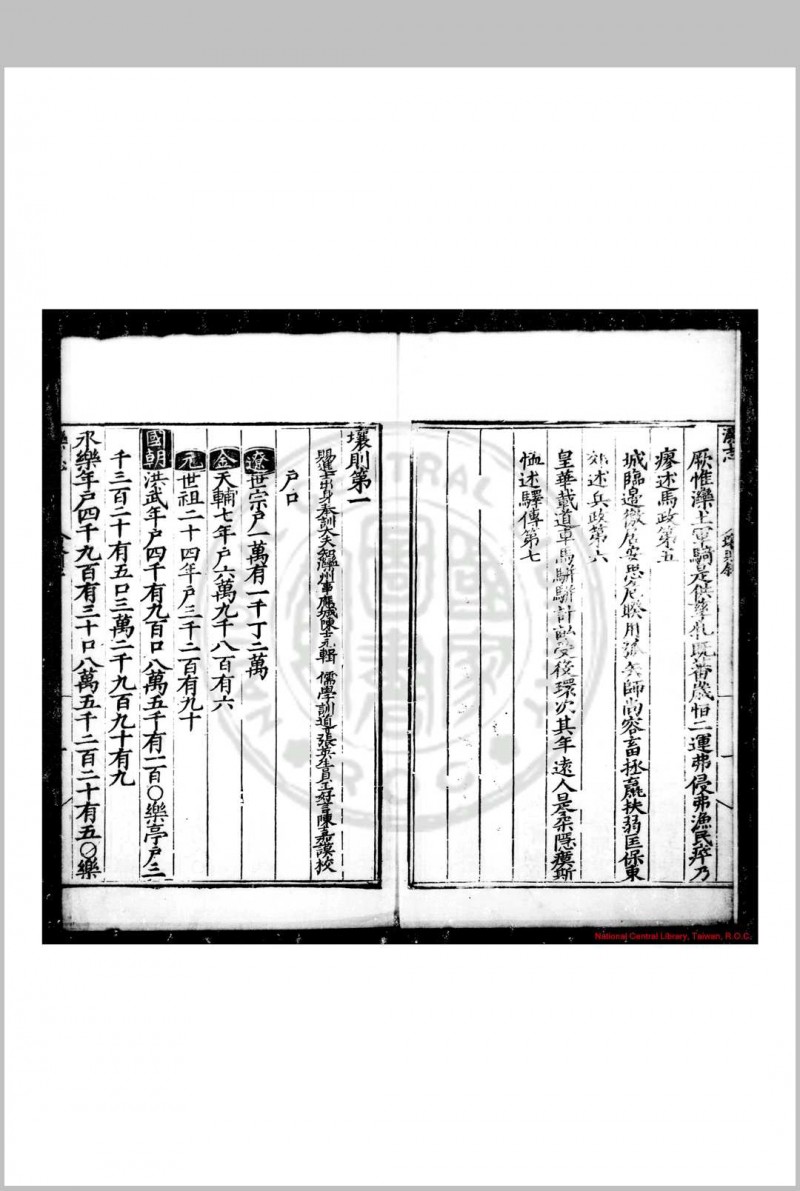 灤志
厥惟灤土軍騎是供孳牝既蕃歲怕二運弗侵弗漁民瘁乃
瘳述馬政第五
城臨邊徼居安思危睽用弧矢師尚容畜拯羸扶弱匡保東
郊述兵政第六
皇華載道車馬駢駢計畝受役環次其年遠人是柔隱瘼斯
恤述驛傳第七
壤則第一
賜進士出身奉訓大夫知灤州事應城陳士元輯 儒學訓導張 生員王好言陳嘉謨校
戶口
遼世宗戶一萬有一千丁二萬
金天輔七年戶六萬九千八百有六
元世祖二十四年戶三千二百有九十
國朝洪武年戶四千有九百口八萬五千有一百〇樂亭戶三
千三百二十有五口三萬二千九百九十有九
永樂年戶四千九百有三十口八萬五千二百二十有五〇樂
NATIONAL CENTRAL LIBRARY R.O.C.
國家圖書館
National Central Library, Taiwan, R.O.C.